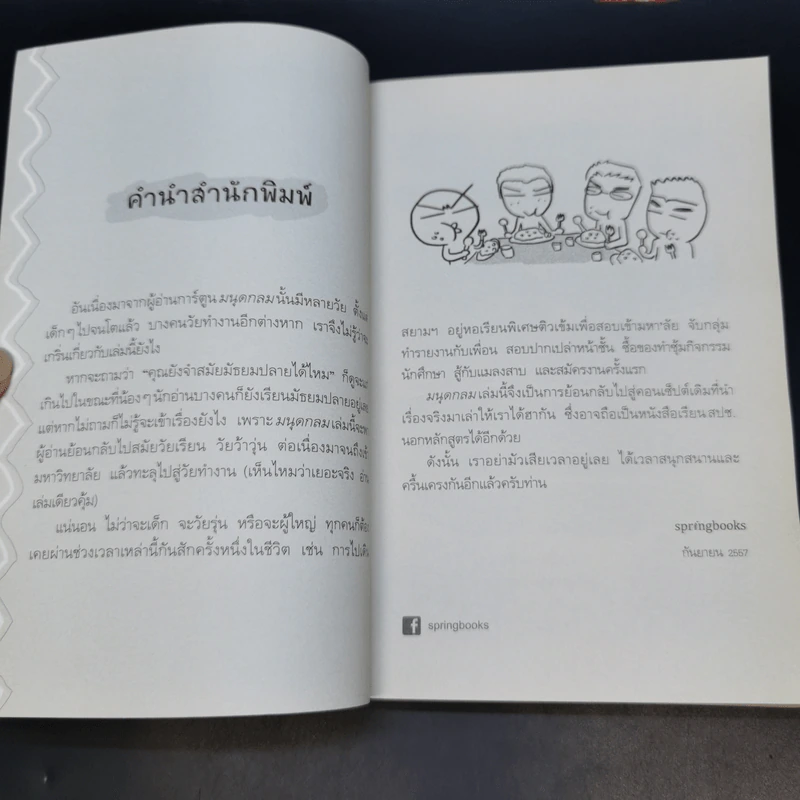 คำนำสำนักพิมพ์
อันเนื่องมาจากผู้อ่านการ์ตูนมนุดกลมนั้นมีหลายวัย ตั้งแต่
เด็กๆ ไปจนโตแล้ว บางคนวัยทำงานอีกต่างหาก เราจึงไม่รู้ว่าจะ
เกริ่นเกี่ยวกับเล่มนี้ยังไง
หากจะถามว่า "คุณยังจำสมัยมัธยมปลายได้ไหม" ก็ดูจะแก่
เกินไปในขณะที่น้องๆ นักอ่านบางคนก็ยังเรียนมัธยมปลายอยู่เลย
แต่หากไม่ถามก็ไม่รู้จะเข้าเรื่องยังไง เพราะมนุดกลมเล่มนี้จะพา
ผู้อ่านย้อนกลับไปสมัยวัยเรียน วัยว้าวุ่น ต่อเนื่องมาจนถึงเข้า
มหาวิทยาลัย แล้วทะลุไปสู่วัยทำงาน (เห็นไหมว่าเยอะจริง อ่าน
เล่มเดียวคุ้ม)
แน่นอน ไม่ว่าจะเด็ก จะวัยรุ่น หรือจะผู้ใหญ่ ทุกคนก็ต้อง
เคยผ่านช่วงเวลาเหล่านี้กันสักครั้งหนึ่งในชีวิต เช่น การไปเดิน
สยามฯ อยู่หอเรียนพิเศษติวเข้มเพื่อสอบเข้ามหา'ลัย จับกลุ่ม
ทำรายงานกับเพื่อน สอบปากเปล่าหน้าชั้น ซื้อของทำซุ้มกิจกรรม
นักศึกษา สู้กับแมลงสาบ และสมัครงานครั้งแรก
มนุดกลมเล่มนี้จึงเป็นการย้อนกลับไปสู่คอนเซ็ปต์เดิมที่นำ
เรื่องจริงมาเล่าให้เราได้ฮากัน ซึ่งอาจถือเป็นหนังสือเรียน สปช.
นอกหลักสูตรได้อีกด้วย
ดังนั้น เราอย่ามัวเสียเวลาอยู่เลย ได้เวลาสนุกสนานและ
ครื้นเครงกันอีกแล้วครับท่าน
springbooks
กันยายน 2557
f springbooks